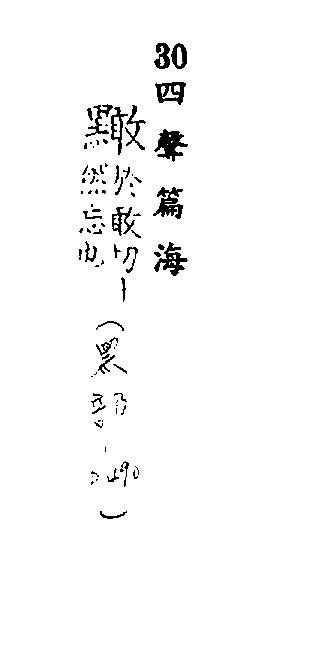 30 四聲篇海
於敢切丨
然忘也
(黑部
490)